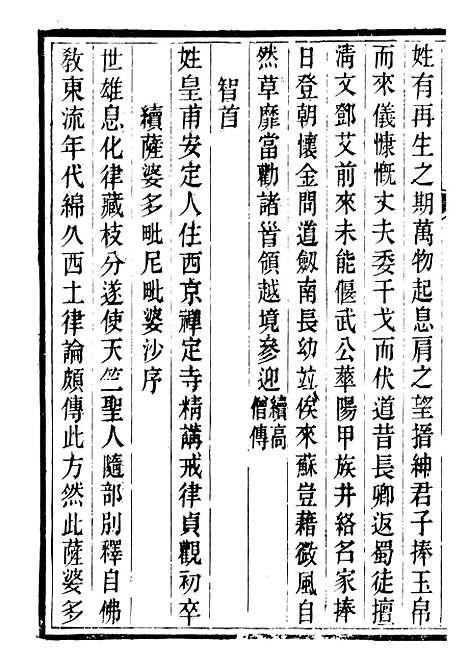 姓有再生之期萬物起息肩之望搢紳君子捧玉帛
而來儀慷慨丈夫委干戈而伏道昔長卿返蜀徒擅
淸文鄧艾前來未能偃武公華陽甲族井絡名家捧
日登朝懷金問道劔南長幼竝俟來蘇豈藉微風自
然草靡當勸諸首領越境參迎續高僧傳
智首
姓皇甫安定人住西京禪定寺精講戒律貞觀初卒
續薩婆多毗尼毗婆沙序
世雄息化律藏枝分遂使天竺聖人隨部別釋自佛
敎東流年代綿久西土律論頗傳此方然此薩婆多